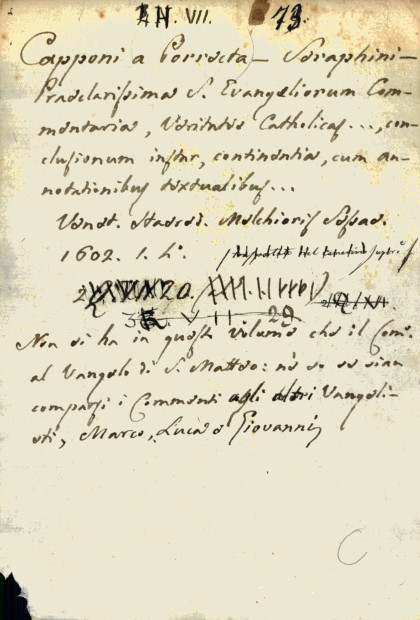 AN. VII. 73.
Capponi a Porrecta – Seraphini –
Praeclarissima S. Evangeliorum Com-
mentaria, Veritates Catholicas..., con-
clusionum instar, continentia, cum an-
notationibus textualibus...
Venet. Haered. Melchioris Sessae.
1602. 1. f.°
20.
V I I 29
Non si ha in questo volume che il Com.
al Vangelo di S. Matteo: nè so se sian
comparsi i Commenti agli altri Vangeli-
sti, Marco, Luca e Giovanni